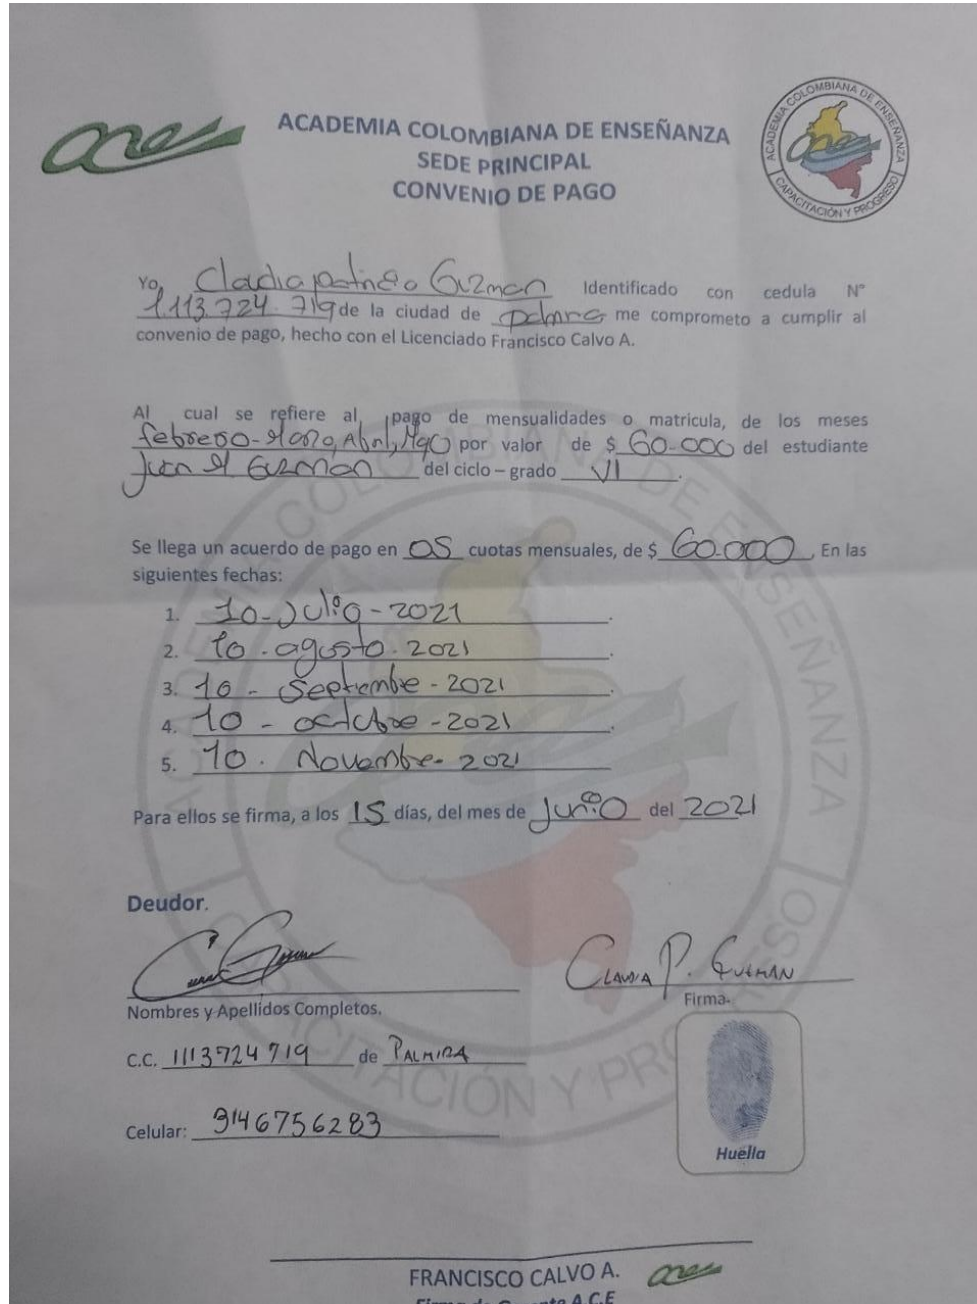 ACADEMIA COLOMBIANA DE ENSEÑANZA
SEDE PRINCIPAL
CONVENIO DE PAGO
ace
ACADEMIA COLOMBIANA DE ENSEÑANZA
CAPACITACIÓN Y PROGRESO
Yo, Claudia patricia Guzman Identificado con cedula N°
1.113.724.719 de la ciudad de palmira me comprometo a cumplir al
convenio de pago, hecho con el Licenciado Francisco Calvo A.
Al cual se refiere al pago de mensualidades o matricula, de los meses
febrero-Marzo, Abril, Mayo por valor de $ 60.000 del estudiante
Juan M Guzman del ciclo – grado VI.
Se llega un acuerdo de pago en 05 cuotas mensuales, de $ 60.000, En las
siguientes fechas:
1. 10-Julio-2021.
2. 10.agosto.2021.
3. 10-Septiembre-2021.
4. 10-octubre-2021.
5. 10.Novembre-2021
Para ellos se firma, a los 15 días, del mes de Junio del 2021
Deudor.
CLAUDIA P. GUZMAN
Nombres y Apellidos Completos.
Firma.
C.C. 1113724719 de PALMIRA
Celular: 3146756283
Huella
FRANCISCO CALVO A. ace
A.C.E